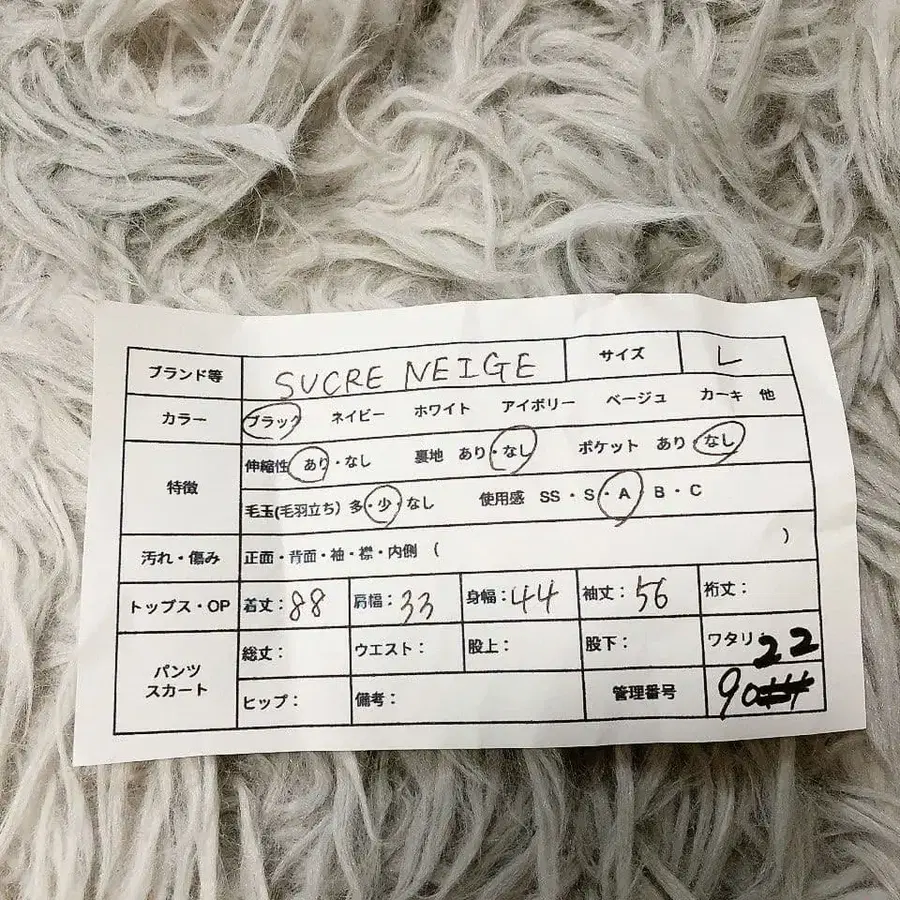 ブランド等 SUCRE NEIGE サイズ L
カラー ブラック ネイビー ホワイト アイボリー ベージュ カーキ 他
特徴 伸縮性 あり・なし 裏地 あり・なし ポケット あり なし
毛玉(毛羽立ち) 多・少・なし 使用感 SS・S・A・B・C
汚れ・傷み 正面・背面・袖・襟・内側 ( )
トップス・OP 着丈:88 肩幅:33 身幅:44 袖丈:56 裄丈:
パンツ スカート 総丈: ウエスト: 股上: 股下: ワタリ:
22
ヒップ: 備考: 管理番号 90